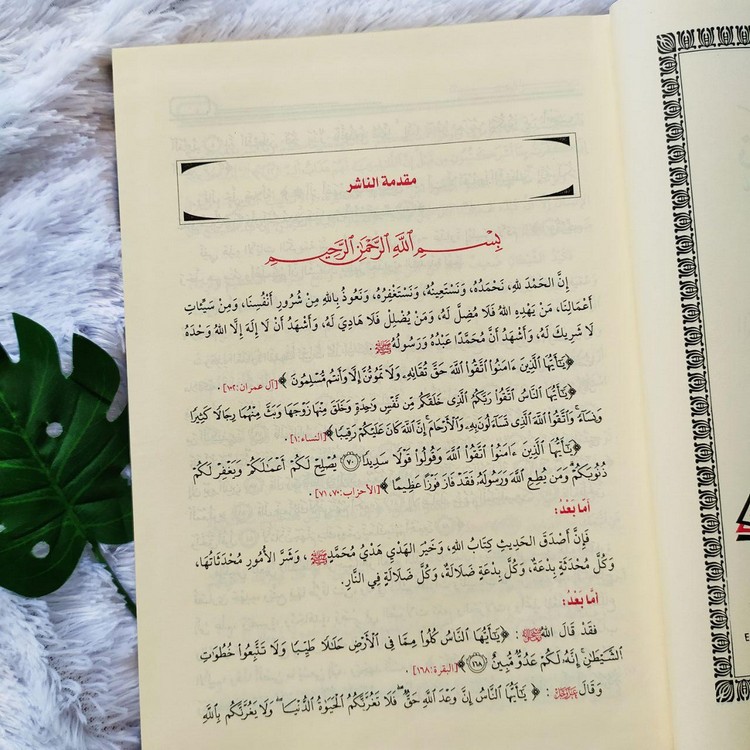 مقدمة الناشر
بِسْمِ ٱللَّهِ ٱلرَّحْمَٰنِ ٱلرَّحِيمِ
إِنَّ الْحَمْدَ لِلهِ، نَحْمَدُهُ، وَنَسْتَعِينُهُ، وَنَسْتَغْفِرُهُ، وَنَعُوذُ بِاللهِ مِنْ شُرُورِ أَنْفُسِنَا، وَمِنْ سَيِّئَاتِ
أَعْمَالِنَا، مَنْ يَهْدِهِ اللهُ فَلَا مُضِلَّ لَهُ، وَمَنْ يُضْلِلْ فَلَا هَادِيَ لَهُ، وَأَشْهَدُ أَنْ لَا إِلَهَ إِلَّا اللهُ وَحْدَهُ
لَا شَرِيكَ لَهُ، وَأَشْهَدُ أَنَّ مُحَمَّدًا عَبْدُهُ وَرَسُولُهُ ﷺ.
﴿يَٰٓأَيُّهَا ٱلَّذِينَ ءَامَنُوا۟ ٱتَّقُوا۟ ٱللَّهَ حَقَّ تُقَاتِهِۦ وَلَا تَمُوتُنَّ إِلَّا وَأَنتُم مُّسْلِمُونَ﴾ [آل عمران: ١٠٢] .
﴿يَٰٓأَيُّهَا ٱلنَّاسُ ٱتَّقُوا۟ رَبَّكُمُ ٱلَّذِى خَلَقَكُم مِّن نَّفْسٍ وَٰحِدَةٍ وَخَلَقَ مِنْهَا زَوْجَهَا وَبَثَّ مِنْهُمَا رِجَالًا كَثِيرًا
وَنِسَآءً ۚ وَٱتَّقُوا۟ ٱللَّهَ ٱلَّذِى تَسَآءَلُونَ بِهِۦ وَٱلْأَرْحَامَ ۚ إِنَّ ٱللَّهَ كَانَ عَلَيْكُمْ رَقِيبًا﴾ [النساء: ١] .
﴿يَٰٓأَيُّهَا ٱلَّذِينَ ءَامَنُوا۟ ٱتَّقُوا۟ ٱللَّهَ وَقُولُوا۟ قَوْلًا سَدِيدًا ٧٠ يُصْلِحْ لَكُمْ أَعْمَٰلَكُمْ وَيَغْفِرْ لَكُمْ
ذُنُوبَكُمْ ۗ وَمَن يُطِعِ ٱللَّهَ وَرَسُولَهُۥ فَقَدْ فَازَ فَوْزًا عَظِيمًا﴾ [الأحزاب: ٧٠، ٧١] .
أَمَّا بَعْدُ:
فَإِنَّ أَصْدَقَ الْحَدِيثِ كِتَابُ اللهِ، وَخَيْرَ الْهَدْيِ هَدْيُ مُحَمَّدٍ ﷺ، وَشَرَّ الْأُمُورِ مُحْدَثَاتُهَا،
وَكُلَّ مُحْدَثَةٍ بِدْعَةٌ، وَكُلَّ بِدْعَةٍ ضَلَالَةٌ، وَكُلَّ ضَلَالَةٍ فِي النَّارِ.
أَمَّا بَعْدُ:
فَقَدْ قَالَ اللهُ : ﴿يَٰٓأَيُّهَا ٱلنَّاسُ كُلُوا۟ مِمَّا فِى ٱلْأَرْضِ حَلَٰلًا طَيِّبًا وَلَا تَتَّبِعُوا۟ خُطُوَٰتِ
ٱلشَّيْطَٰنِ ۚ إِنَّهُۥ لَكُمْ عَدُوٌّ مُّبِينٌ ١٦٨﴾ [البقرة: ١٦٨] .
وَقَالَ : ﴿يَٰٓأَيُّهَا ٱلنَّاسُ إِنَّ وَعْدَ ٱللَّهِ حَقٌّ ۖ فَلَا تَغُرَّنَّكُمُ ٱلْحَيَوٰةُ ٱلدُّنْيَا ۖ وَلَا يَغُرَّنَّكُم بِٱللَّهِ